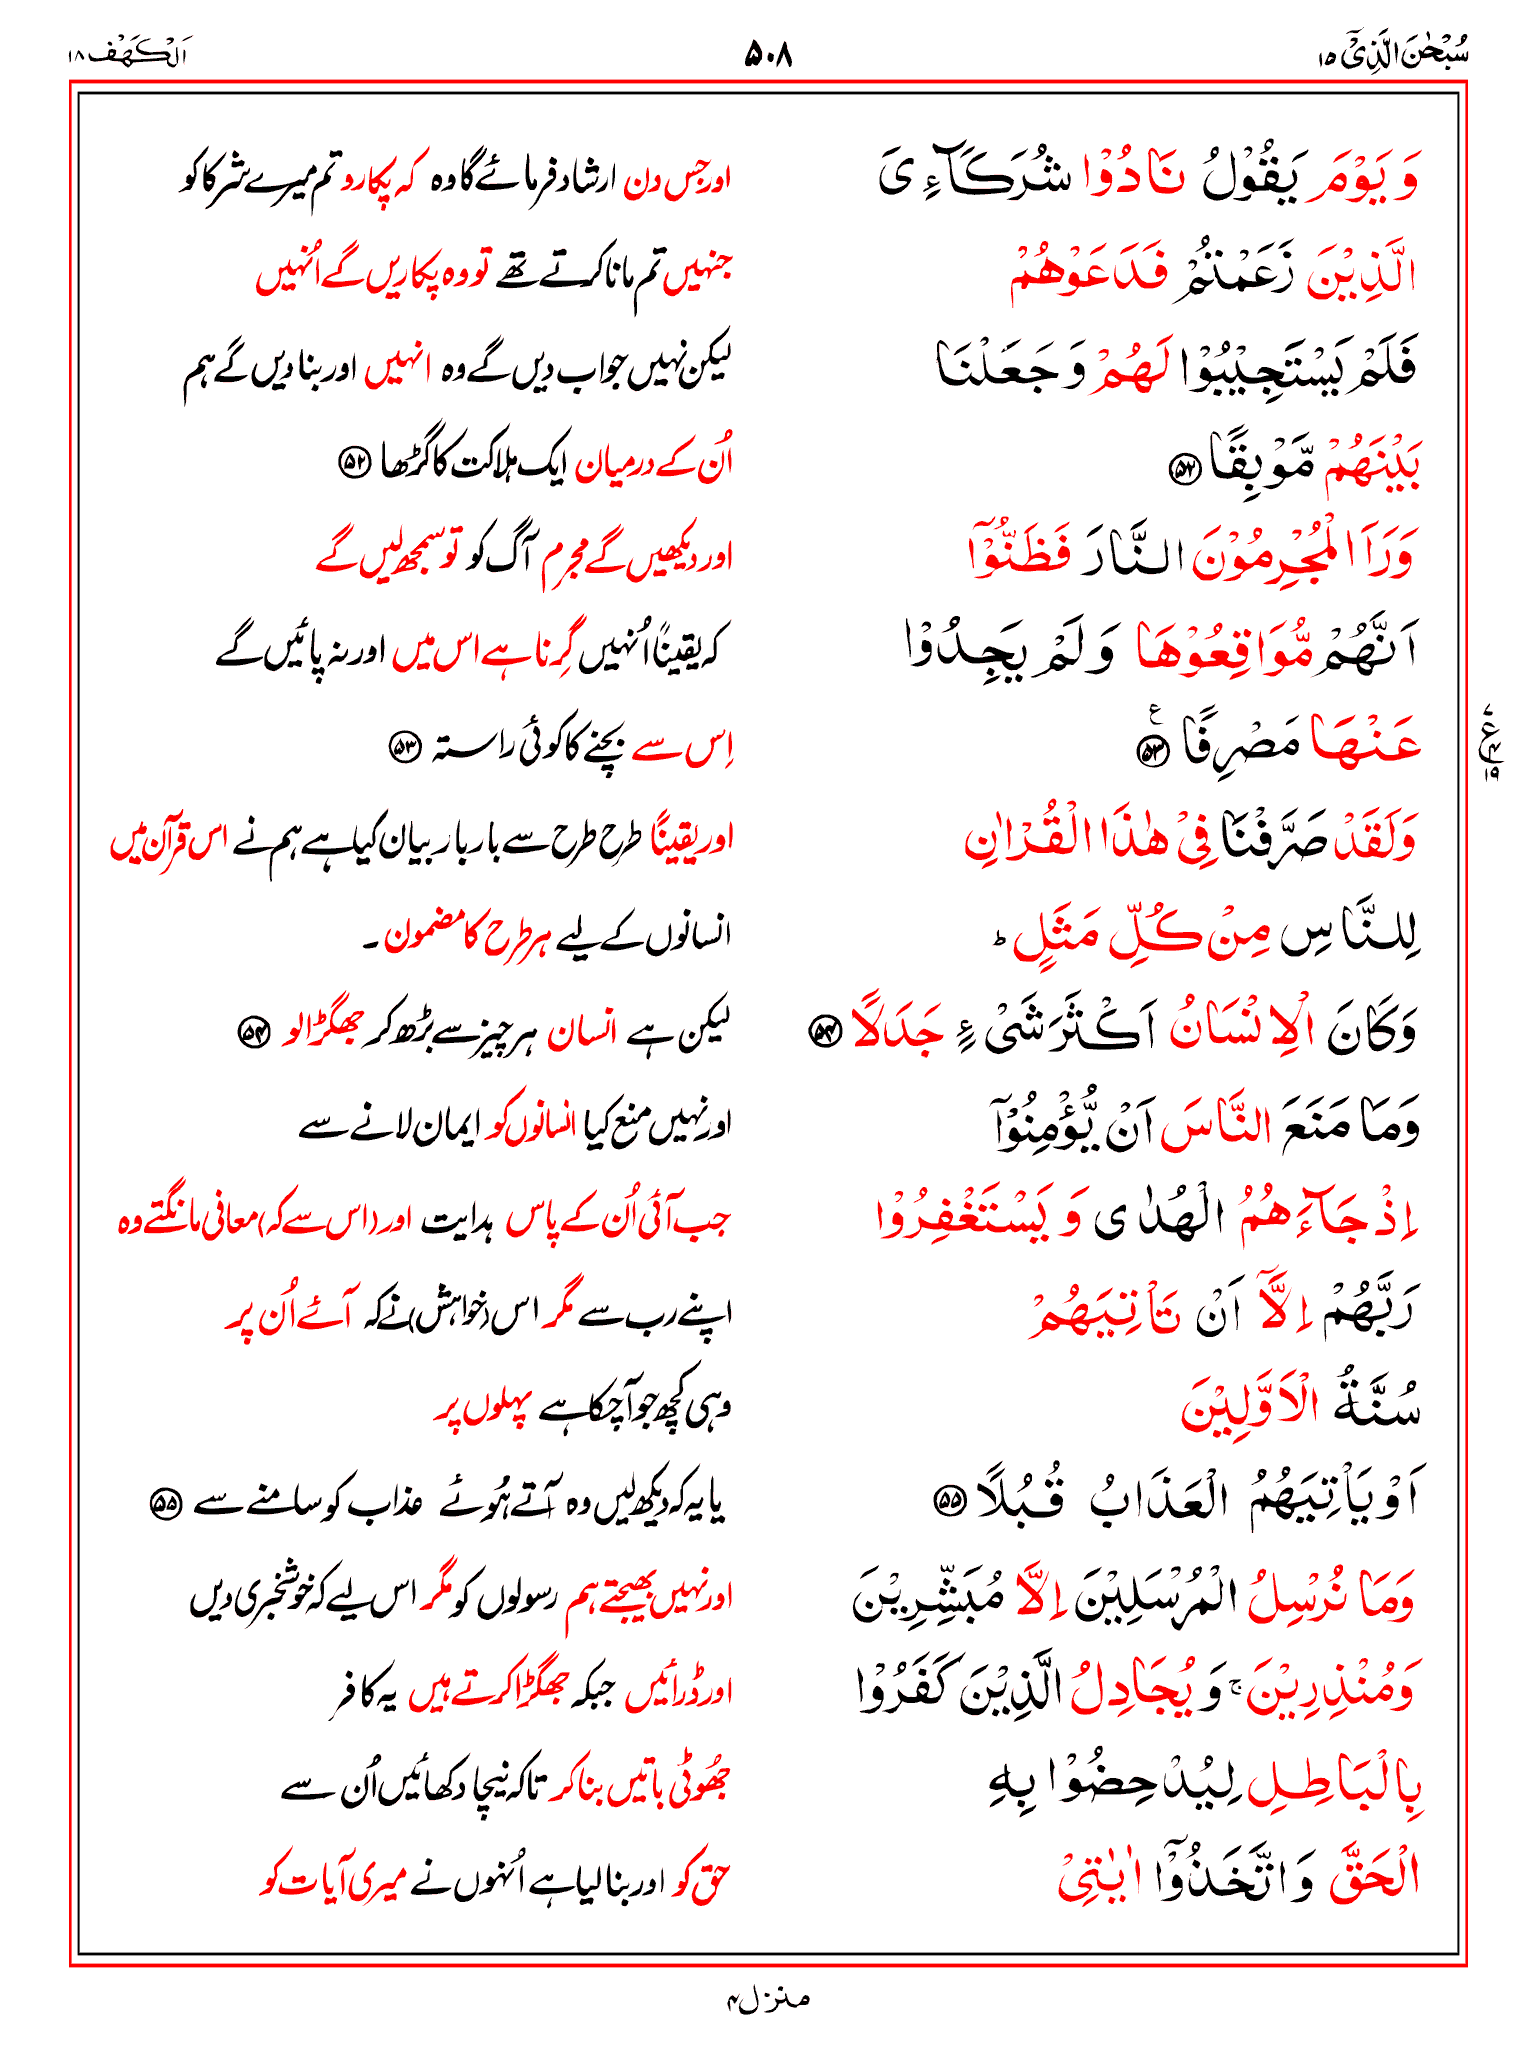 سُبْحٰنَ الَّذِیْۤ ۱۵
۵۰۸
اَلْكَهْف ۱۸
وَ یَوْمَ یَقُوْلُ نَادُوْا شُرَكَآءِیَ
اور جس دن ارشاد فرمائے گا وہ کہ پکارو تم میرے شرکا کو
الَّذِیْنَ زَعَمْتُمْ فَدَعَوْهُمْ
جنہیں تم مانا کرتے تھے تو وہ پکاریں گے اُنہیں
فَلَمْ یَسْتَجِیْبُوْا لَهُمْ وَ جَعَلْنَا
لیکن نہیں جواب دیں گے وہ انہیں اور بنا دیں گے ہم
بَیْنَهُمْ مَّوْبِقًا ۵۲
اُن کے درمیان ایک ہلاکت کا گڑھا ۵۲
وَرَاَ الْمُجْرِمُوْنَ النَّارَ فَظَنُّوْۤا
اور دیکھیں گے مجرم آگ کو تو سمجھ لیں گے
اَنَّهُمْ مُّوَاقِعُوْهَا وَ لَمْ یَجِدُوْا
کہ یقیناً اُنہیں گِرنا ہے اس میں اور نہ پائیں گے
عَنْهَا مَصْرِفًا ۵۳ ع
اِس سے بچنے کا کوئی راستہ ۵۳
۷ ع ۴ ۱۹
وَلَقَدْ صَرَّفْنَا فِیْ هٰذَا الْقُرْاٰنِ
اور یقیناً طرح طرح سے بار بار بیان کیا ہے ہم نے اس قرآن میں
لِلنَّاسِ مِنْ كُلِّ مَثَلٍ ؕ
انسانوں کے لیے ہر طرح کا مضمون ۔
وَكَانَ الْاِنْسَانُ اَكْثَرَ شَیْءٍ جَدَلًا ۵۴
لیکن ہے انسان ہر چیز سے بڑھ کر جھگڑالو ۵۴
وَمَا مَنَعَ النَّاسَ اَنْ یُّؤْمِنُوْۤا
اور نہیں منع کیا انسانوں کو ایمان لانے سے
اِذْ جَآءَهُمُ الْهُدٰی وَ یَسْتَغْفِرُوْا
جب آئی اُن کے پاس ہدایت اور (اس سے کہ) معافی مانگتے وہ
رَبَّهُمْ اِلَّاۤ اَنْ تَاْتِیَهُمْ
اپنے رب سے مگر اس (خواہش) نے کہ آئے اُن پر
سُنَّةُ الْاَوَّلِیْنَ
وہی کچھ جو آ چکا ہے پہلوں پر
اَوْ یَاْتِیَهُمُ الْعَذَابُ قُبُلًا ۵۵
یا یہ کہ دیکھ لیں وہ آتے ہُوئے عذاب کو سامنے سے ۵۵
وَمَا نُرْسِلُ الْمُرْسَلِیْنَ اِلَّا مُبَشِّرِیْنَ
اور نہیں بھیجتے ہم رسولوں کو مگر اس لیے کہ خوشخبری دیں
وَمُنْذِرِیْنَ ۚ وَ یُجَادِلُ الَّذِیْنَ كَفَرُوْا
اور ڈرائیں جبکہ جھگڑا کرتے ہیں یہ کافر
بِالْبَاطِلِ لِیُدْحِضُوْا بِهِ
جھُوٹی باتیں بنا کر تاکہ نیچا دکھائیں اُن سے
الْحَقَّ وَ اتَّخَذُوْۤا اٰیٰتِیْ
حق کو اور بنا لیا ہے اُنہوں نے میری آیات کو
منزل ۴